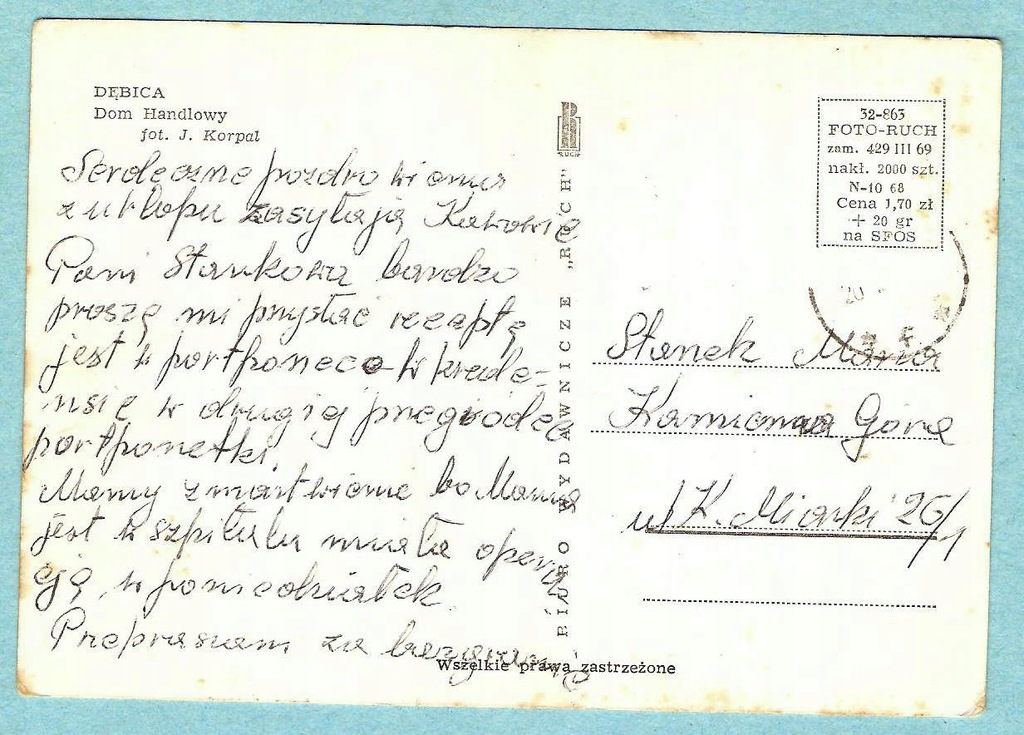 DĘBICA
Dom Handlowy
fot. J. Korpal
Serdeczne pozdrowienia
z urlopu zasyłają
Pani Stankowa bardzo
proszę mi przysłać receptę
jest w portponece w krede-
nsie w drugiej przegródce
portponetki
Mamy zmartwienie bo Mama
jest w szpitalu miała opera
cją w poniedziałek.
Przepraszam za bazgranie
Wszelkie prawa zastrzeżone
RUCH
BIURO WYDAWNICZE „RUCH”
32-863
FOTO-RUCH
zam. 429 III 69
nakł. 2000 szt.
N-10 68
Cena 1,70 zł
+ 20 gr
na SFOS
20
Stanek Maria
Kamienna Góra
ul K. Miarki 26/1